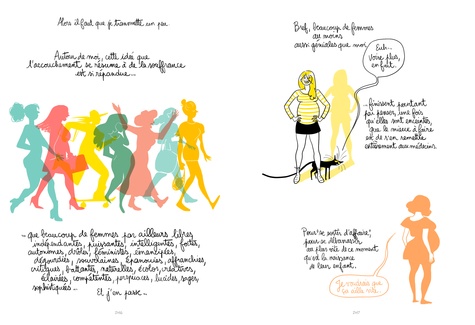 Alors il faut que je transmette un peu.
Autour de moi, cette idée que
l'accouchement se résume à de la souffrance
est si répandue...
... que beaucoup de femmes par ailleurs libres,
indépendantes, puissantes, intelligentes, fortes,
autonomes, drôles, féministes, émancipées,
dégourdies, souveraines, épanouies, affranchies,
critiques, battantes, naturelles, écolos, créatives,
éclairées, compétentes, perspicaces, lucides, sages,
sophistiquées...
Et j'en passe...
Bref, beaucoup de femmes
au moins
aussi géniales que moi,
Euh...
Voire plus,
en fait.
... finissent pourtant
par penser, une fois
qu'elles sont enceintes,
que le mieux à faire
est de s'en remettre
entièrement aux médecins.
Pour se sortir d'affaire,
pour se débarrasser
au plus vite de ce moment
qu'est la naissance
de leur enfant.
Je voudrais que
ça aille vite.